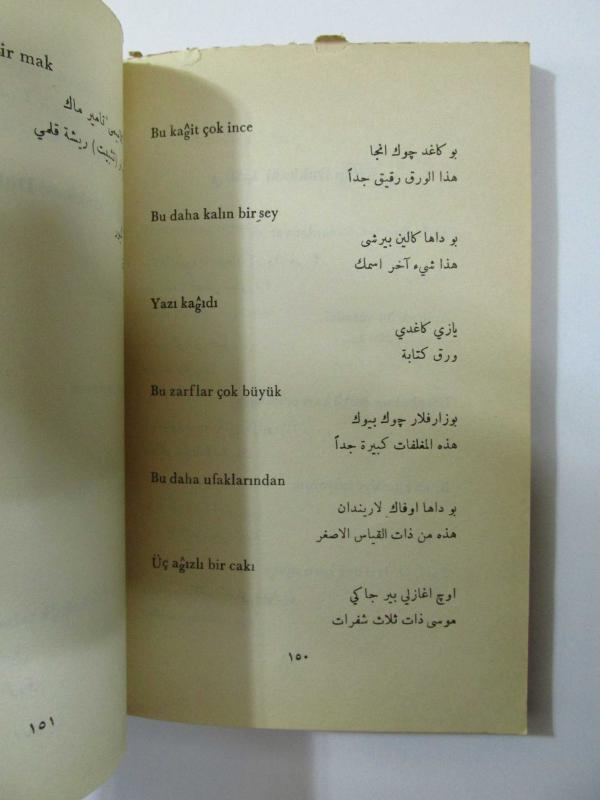 Bu kağit çok ince
بو كاغد چوك انجا
هذا الورق رقيق جداً
Bu daha kalın bir şey
بو داها كالين بيرشى
هذا شيء آخر اسمك
Yazı kağıdı
يازي كاغدي
ورق كتابة
Bu zarflar çok büyük
بوزارفلار چوك بيوك
هذه المغلفات كبيرة جداً
Bu daha ufaklarından
بو داها اوفاك لاريندان
هذه من ذات القياس الاصغر
Üç ağızlı bir cakı
اوچ اغازلي بير جاكي
موسى ذات ثلاث شفرات
١٥٠
ir mak
تامير ماك
ريشة قلمي
١٥١